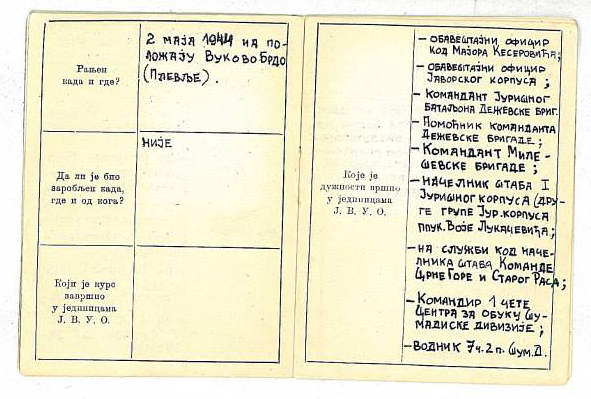 Рањен
када и где?
2 маја 1944 на по-
ложају Вуково Брдо
(Пљевље).
Да ли је био
заробљен када,
где и од кога?
није
Који је курс
завршио
у јединицама
Ј. В. У. О.
Које је
дужности вршио
у јединицама
Ј. В. У. О.
– обавештајни официр
код мајора Кесеровића;
– обавештајни официр
Јаворског корпуса;
– Командант Јуришног
батаљона Дежевске бриг.
– Помоћник команданта
Дежевске бригаде;
– Командант Миле-
шевске бригаде;
– начелник штаба I
Јуришног корпуса (дру-
ге групе Јур. корпуса
ппук. Воје Лукачевића;
– на служби код наче-
лника штаба Команде
Црне Горе и Старог Раса;
– Командир 1 чете
Центра за обуку Шу-
мадиске дивизије;
– водник 7ч. 2п. Шум. Д.